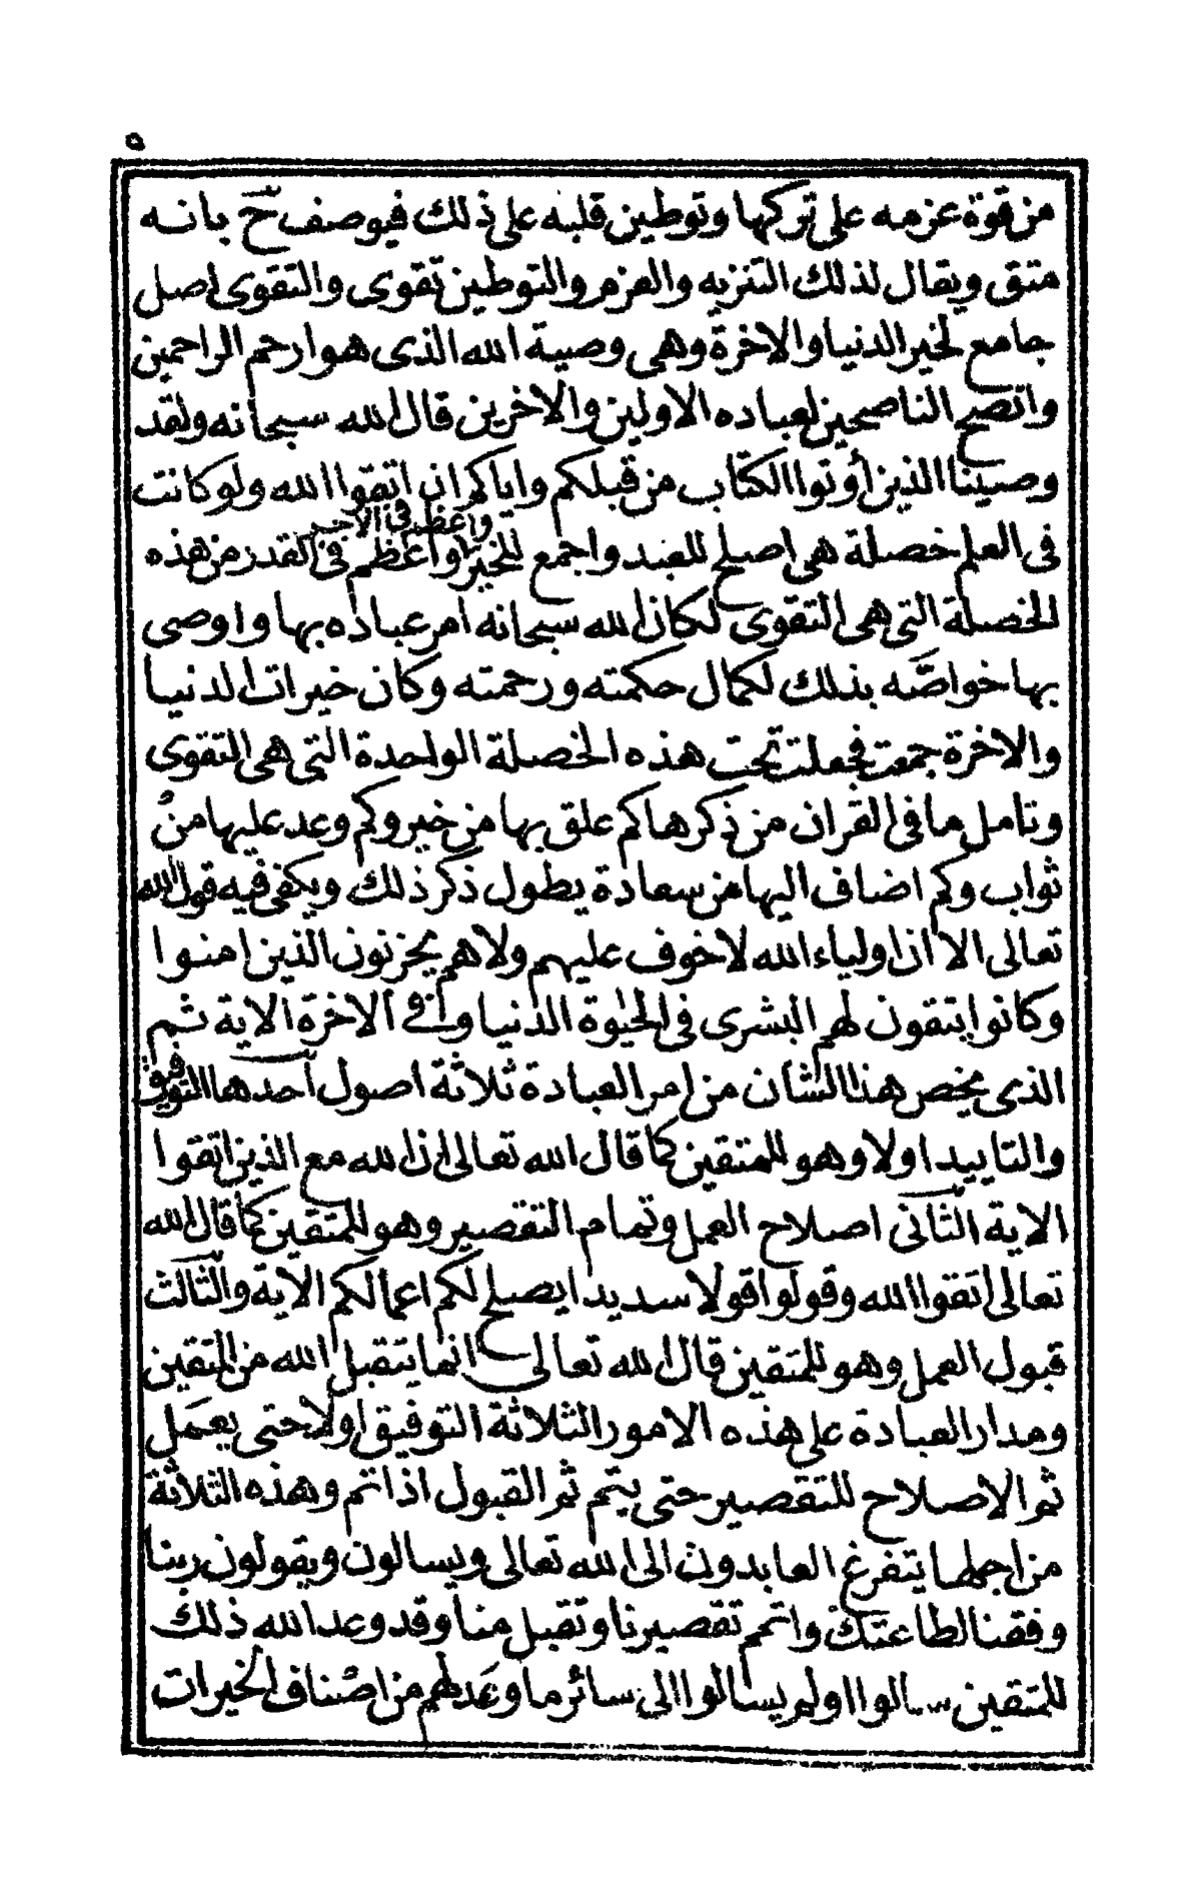 ٥
من قوة عزمه على تركها وتوطين قلبه على ذلك فيوصف ح بانه
متق ويقال لذلك التنزيه والعزم والتوطين تقوى والتقوى اصل
جامع لخير الدنيا والاخرة وهى وصية الله الذى هو ارحم الراحمين
وانصح الناصحين لعباده الاولين والاخرين قال الله سبحانه ولقد
وصينا الذين أوتوا الكتاب من قبلكم واياكم ان اتقوا الله ولو كانت
وأعظم فى الاجر
فى العلم خصلة هى اصلح للعبد واجمع للخير وأعظم فى القدر من هذه
الخصلة التى هى التقوى لكان الله سبحانه امر عباده بها واوصى
بها خواصّه بذلك لكمال حكمته ورحمته وكان خيرات الدنيا
والاخرة جمعت فجعلت تحت هذه الخصلة الواحدة التى هى التقوى
وتامل ما فى القران من ذكرها كم علق بها من خير وكم وعد عليها منُ
ثواب وكم اضاف اليها من سعادة يطول ذكر ذلك ويكفى فيه قول الله
تعالى الا ان اولياء الله لا خوف عليهم ولا هم يحزنون الذين امنوا
وكانوا يتقون لهم البشرى فى الحيوة الدنيا وفى الاخرة الاية ثم
الذى يخص هذا الشان من امر العبادة ثلاثة اصول احدها التوفيق
والتاييد اولا وهو للمتقين كما قال الله تعالى ان الله مع الذين اتقوا
الاية الثانى اصلاح العمل وتمام التقصير وهو للمتقين كما قال الله
تعالى اتقوا الله وقولوا قولا سديدا يصلح لكم اعمالكم الاية والثالث
قبول العمل وهو للمتقين قال الله تعالى انما يتقبل الله من المتقين
ومدار العبادة على هذه الامور الثلاثة التوفيق اولا حتى يعمل
ثم الاصلاح للتقصير حتى يتم ثم القبول اذا تم وهذه الثلاثة
من اجلها يتفرغ العابدون الى الله تعالى ويسالون ويقولون ربنا
وفقنا لطاعتك واتمم تقصيرنا وتقبل منا وقد وعد الله ذلك
للمتقين سالوا اولم يسالوا الى سائر ما وعدهم من اصناف الخيرات